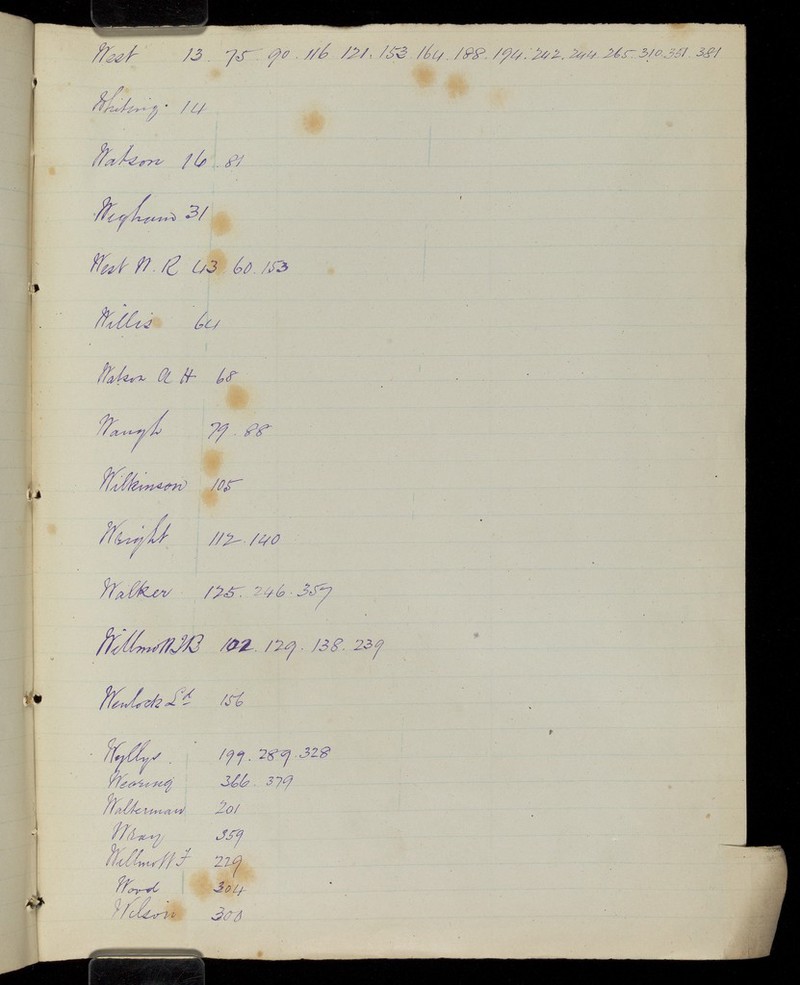 West 13. 75. 90. 116. 121. 153. 164. 188. 194. 242. 244. 265. 310. 351. 381
Whiting. 14
Watson 16. 81
Wegham 31
West W. R 43. 60. 153
Willis 64
Watson A H 68
Waugh 79. 88
Wilkinson 105
Wright 112. 140
Walker 125. 246. 357
Willmott J B 102. 129. 138. 239
Wenlock Ld 156
Wyllys. 199. 289. 328
Wearing 366. 379
Walterman 201
Wray 359
Willmott F 229
Wood 304
Wilson 300